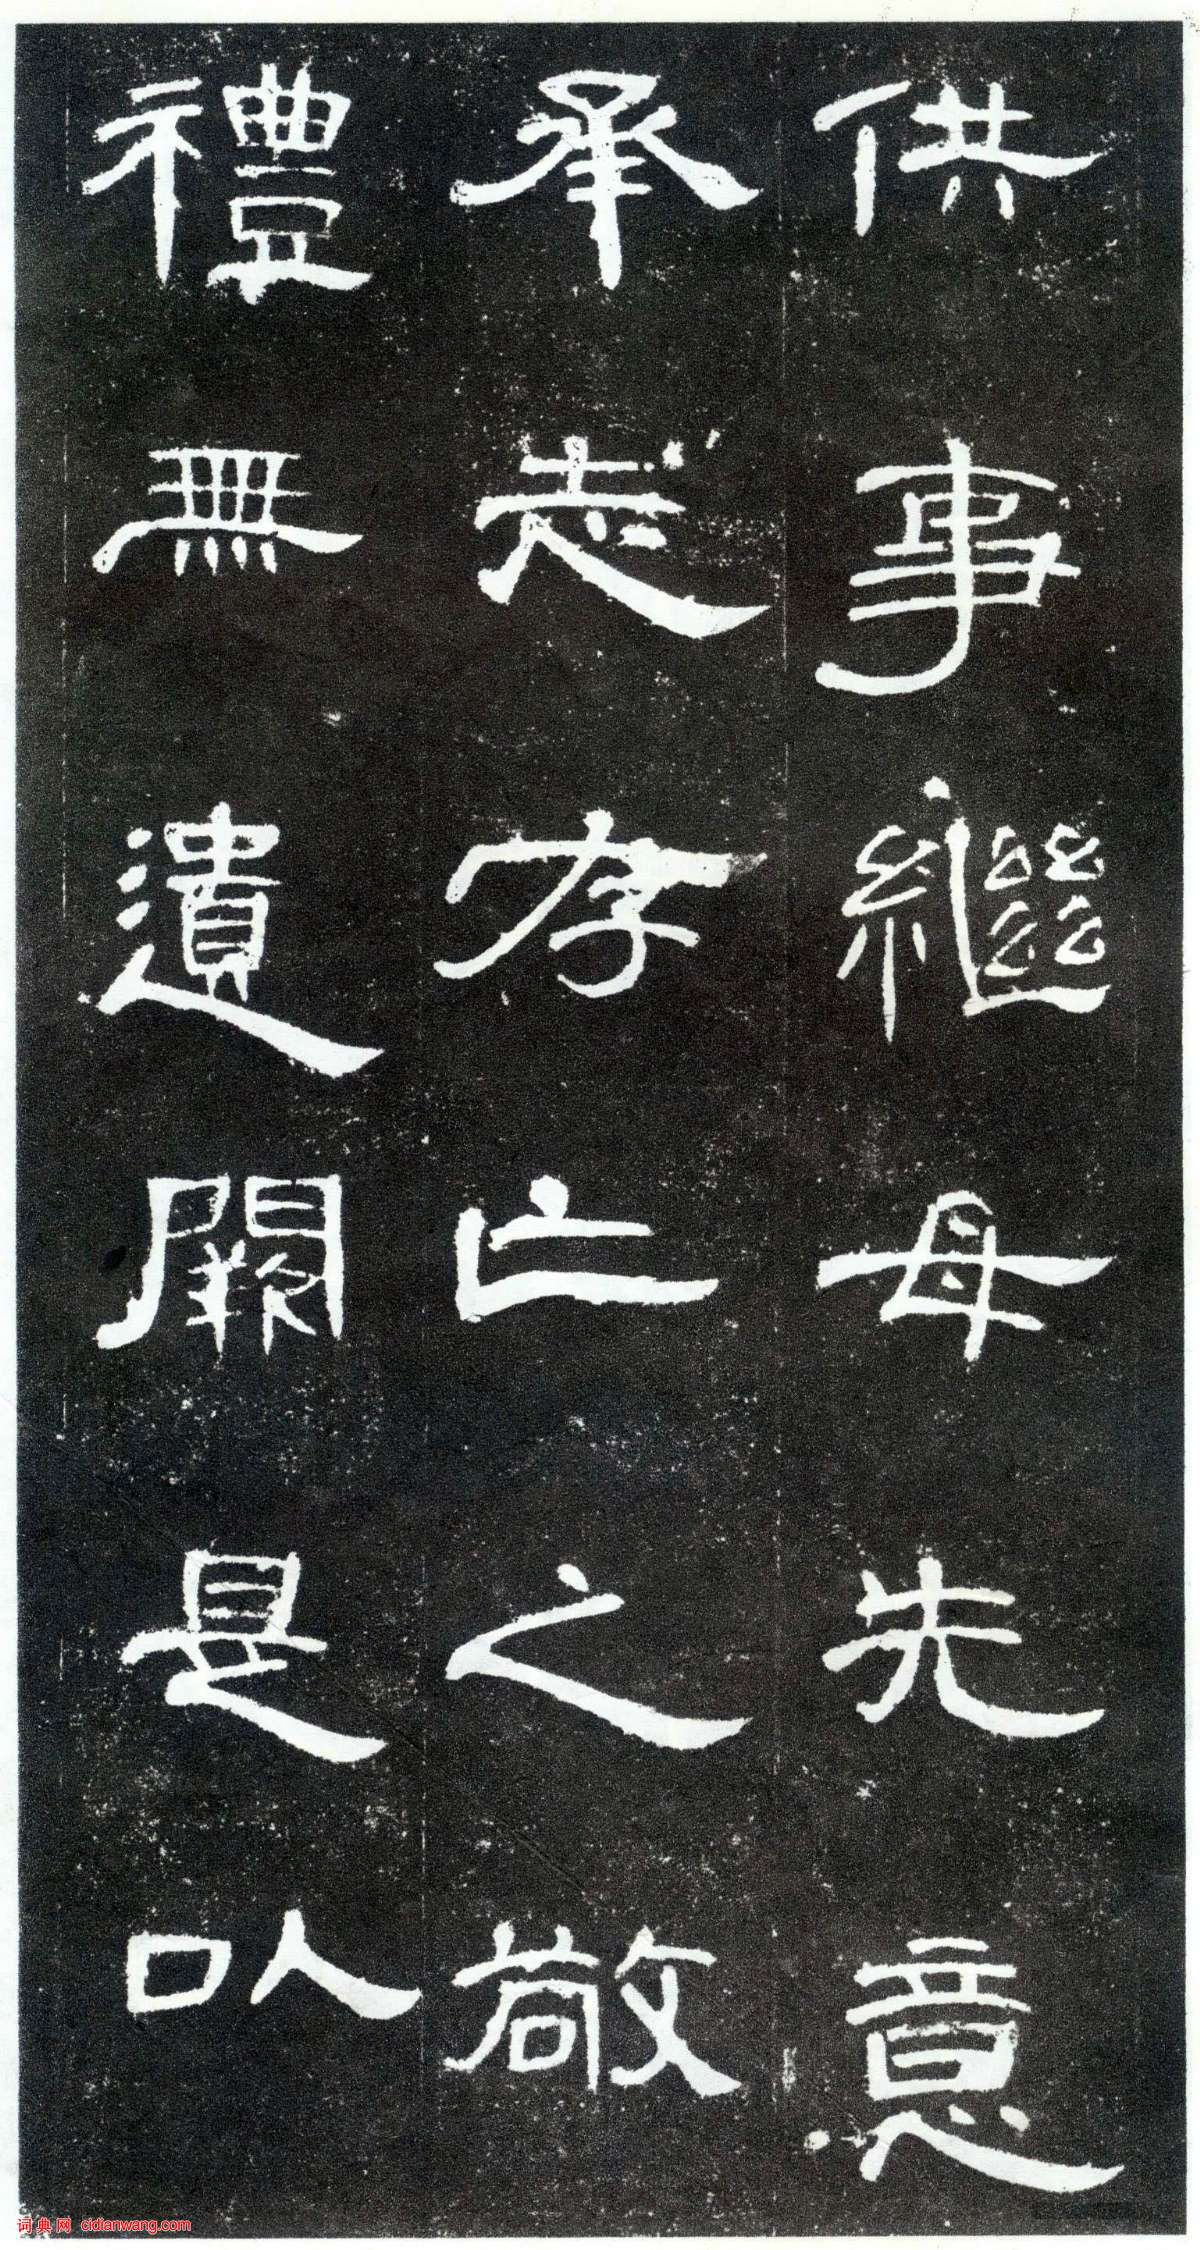 供事繼母先意
承志存亡之敬
禮無遺闕是以
词典网 cidianwang.com